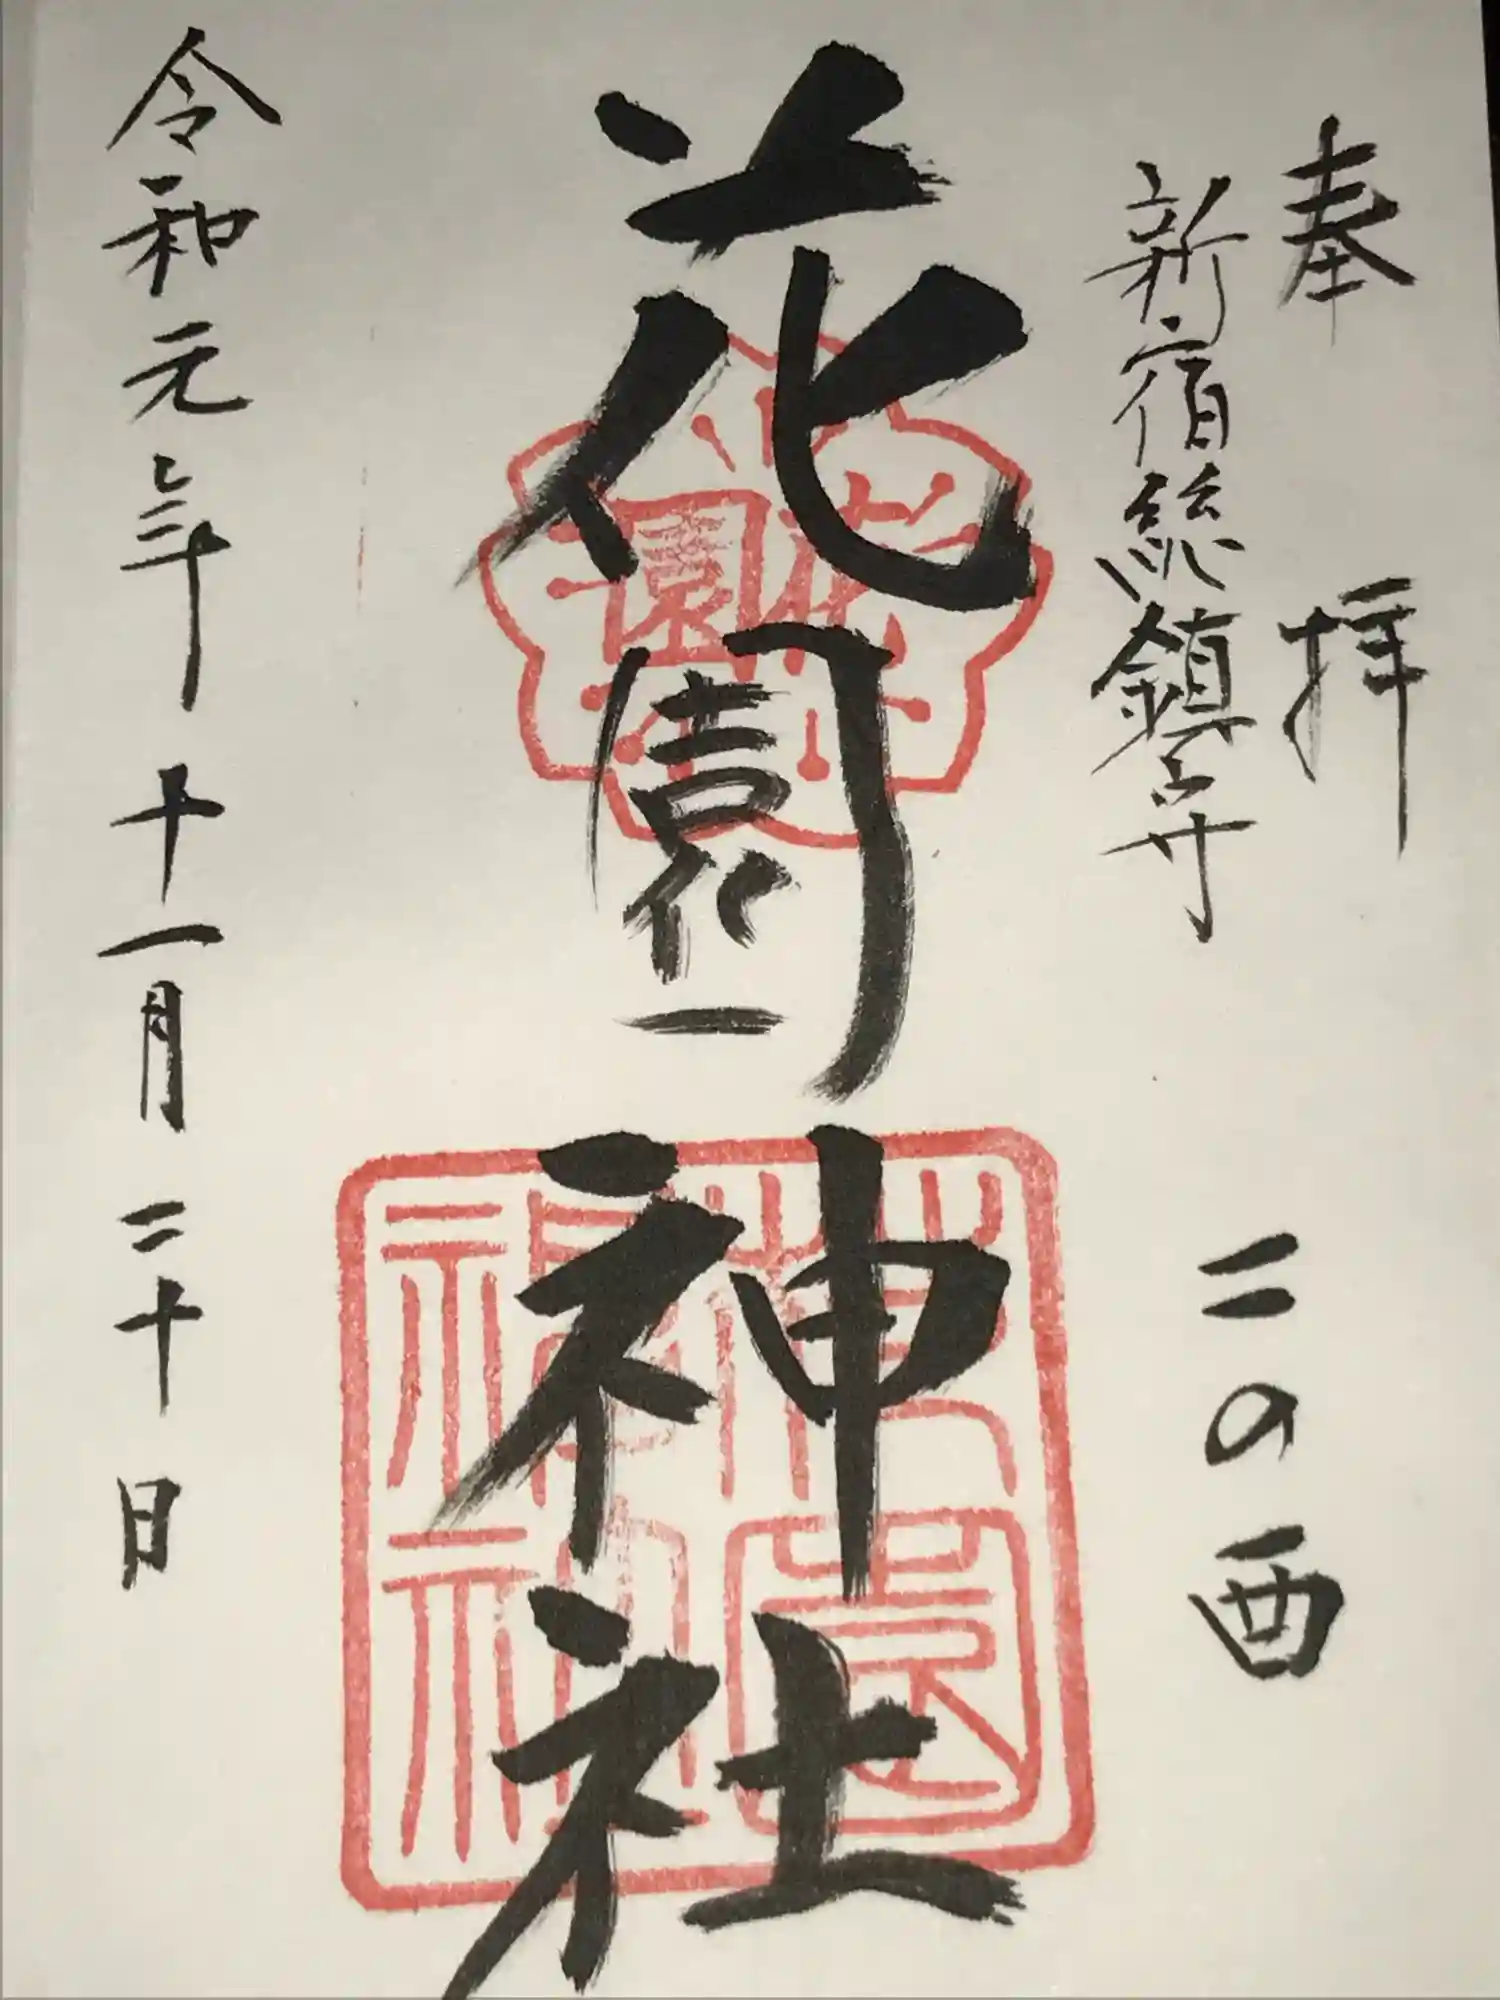 奉拝
新宿総鎮守
二の酉
花園神社
花園
花園神社
令和元年十一月二十日